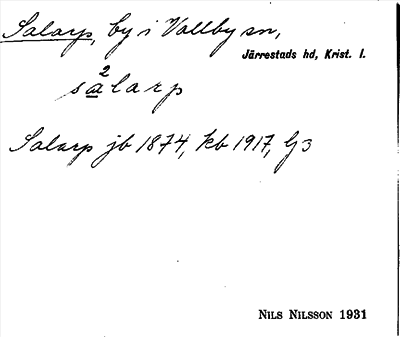 Salarp, by i Vallby sn,
Järrestads hd, Krist. l.
2
salarp
Salarp jb 1874, kb 1917, G 3
NILS NILSSON 1931